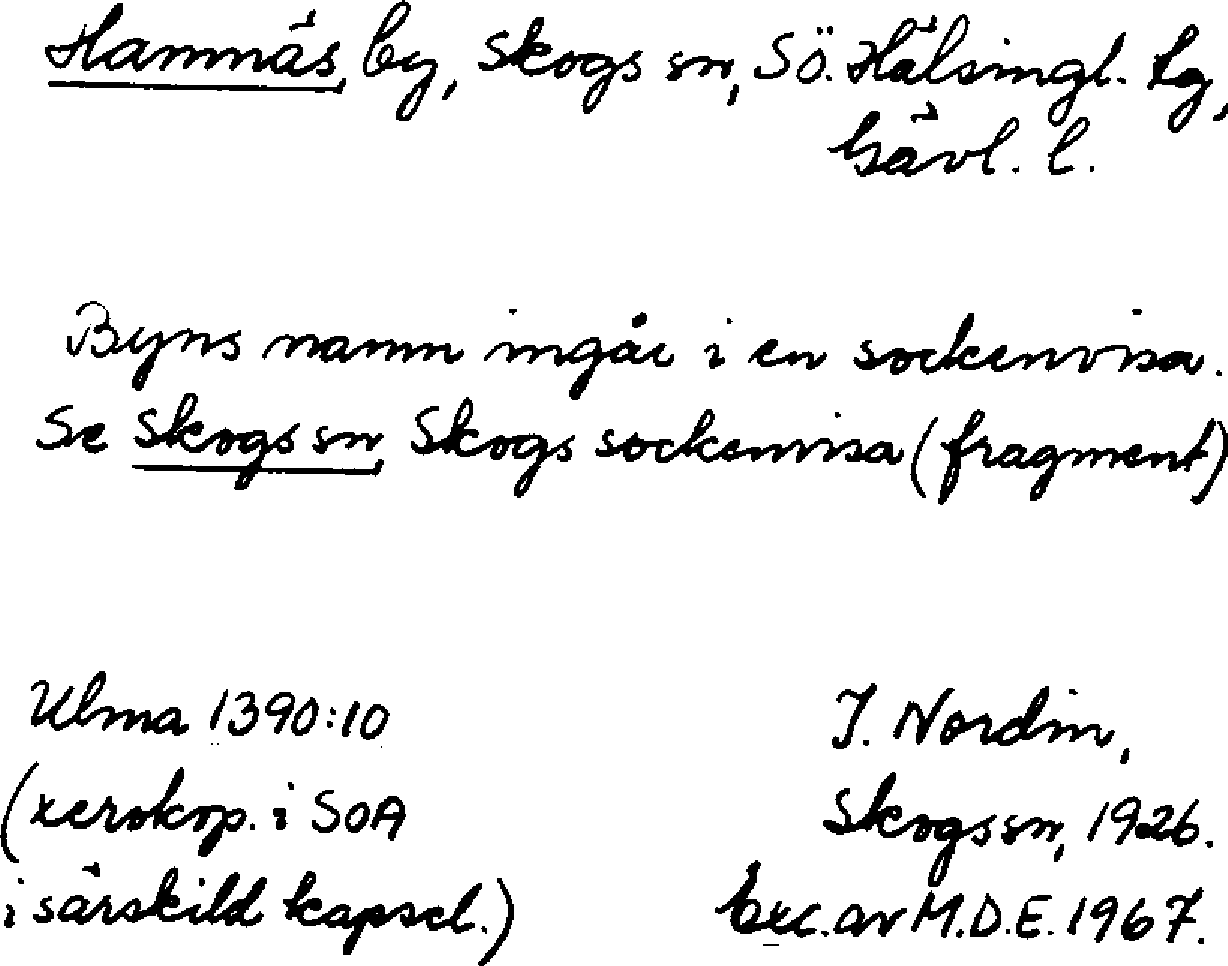 Hamnäs, by, Skogs sn, Sö. Hälsingl. Lg,
Gävl. l.
Byns namn ingår i en sockenvisa.
Se Skogs sn, Skogs sockenvisa (fragment)
Ulma 1390:10
(xerokop. i SOA
i särskild kapsel.)
J. Nordin,
Skogs sn, 1926.
Exc. av M.D.E. 1967.